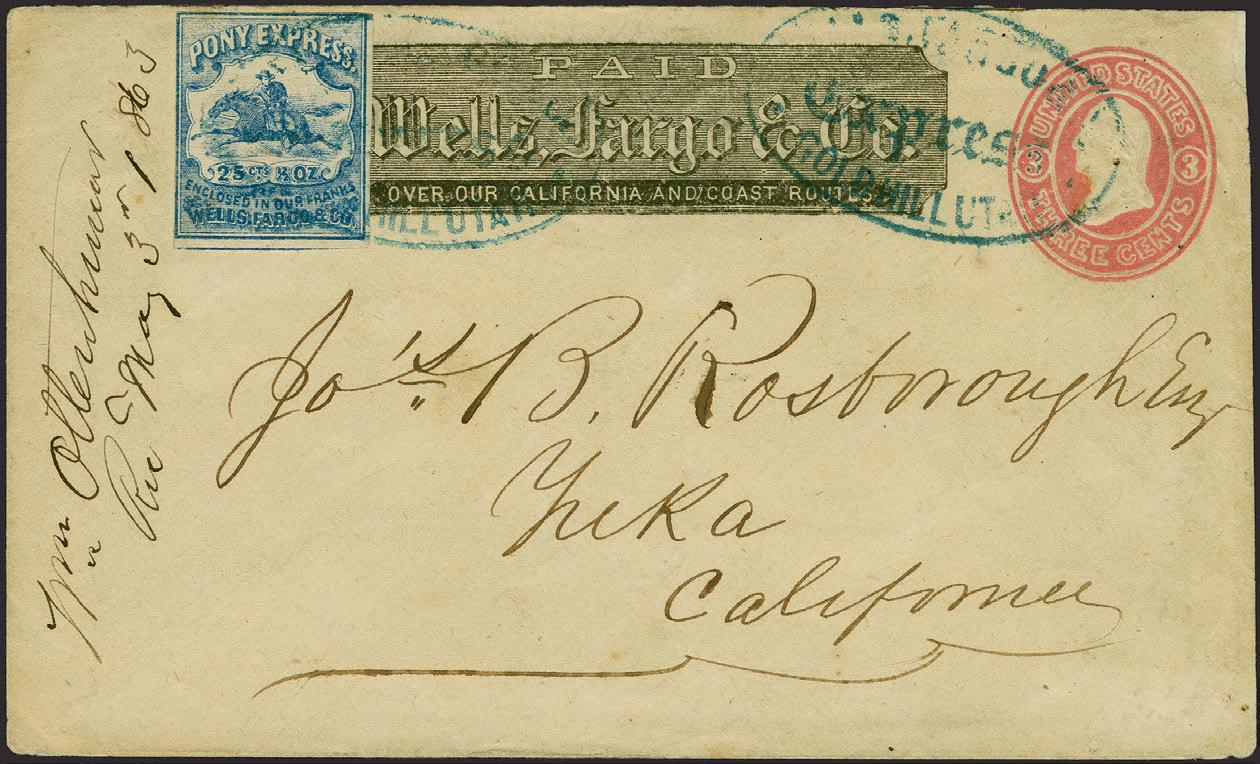 PONY EXPRESS.
25 CTS ½ OZ.
ENCLOSED IN OUR FRANKS
WELLS, FARGO & CO
PAID
Wells, Fargo & Co.
OVER OUR CALIFORNIA AND COAST ROUTES
FARGO
Express
GOLD HILL UT
HILL UTAH
UNITED STATES
3 3
THREE CENTS
Jos B. Rosborough Esq
Yreka
California
Wm Ollenhuear
Rec May 3 1863